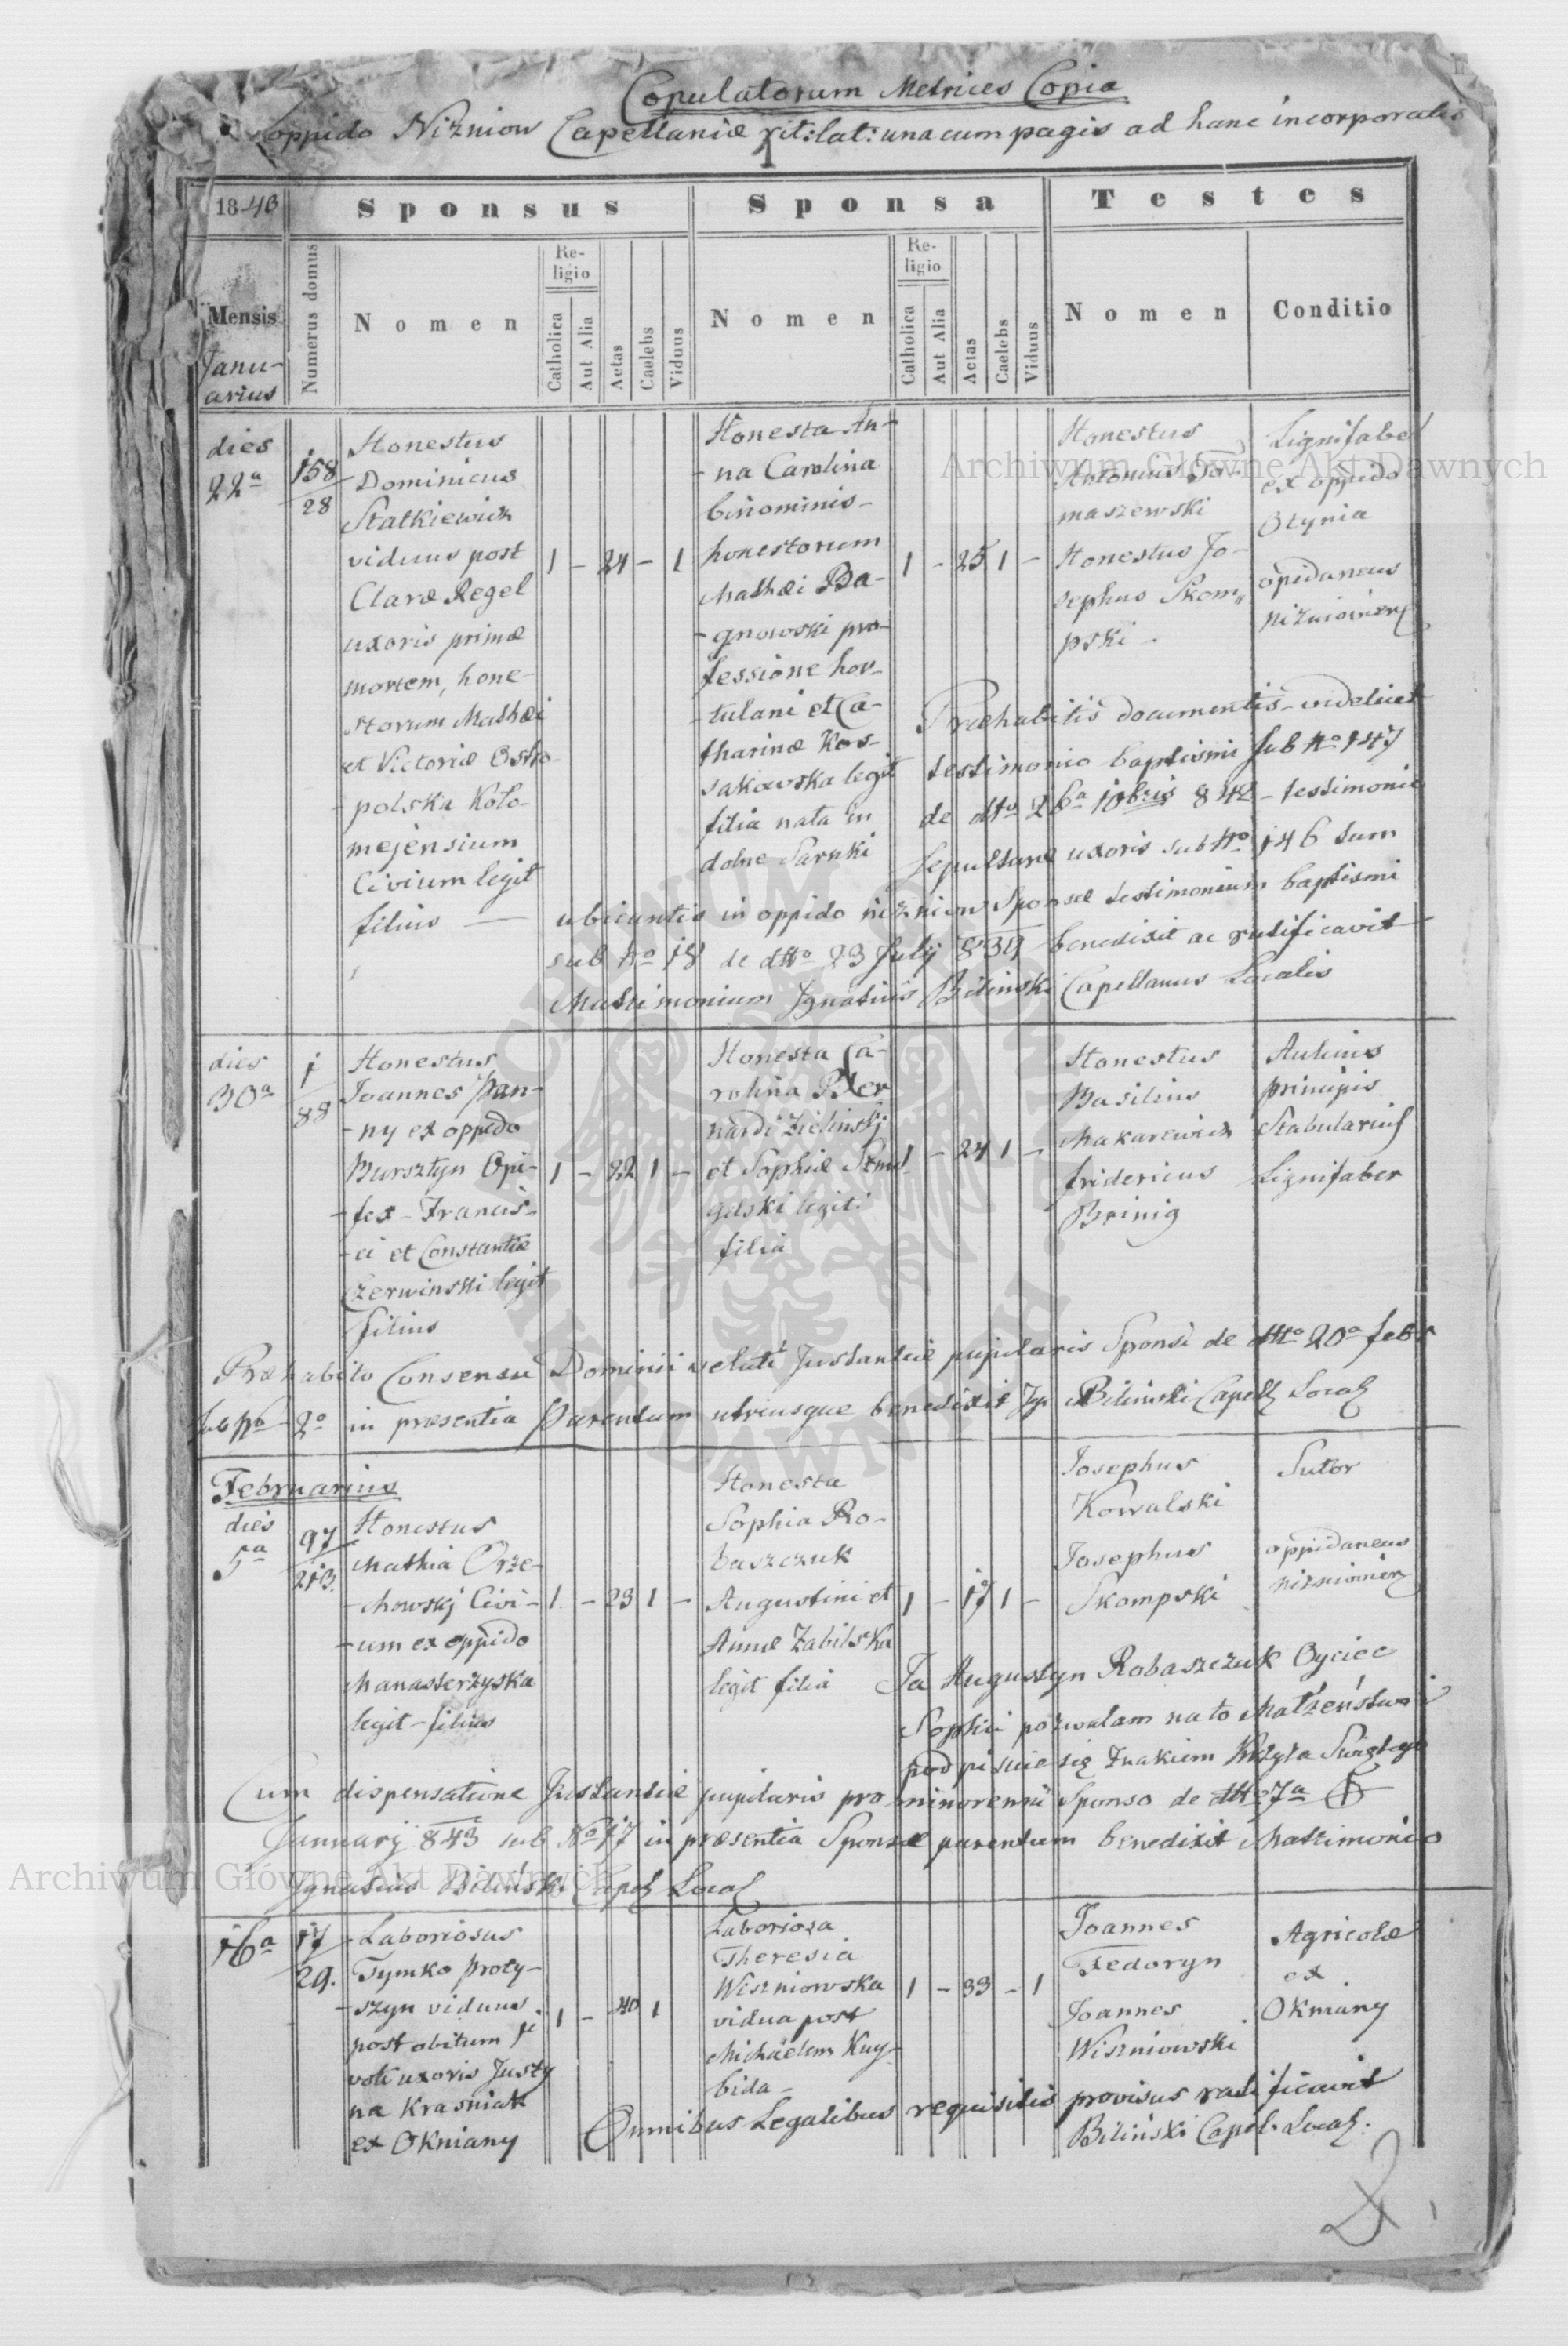 Copulatorum Metrices Copia
oppido Niżniow Capellaniæ rit: lat: una cum pagis ad hanc incorporatis
1843 Sponsus Sponsa Testes
Mensis Numerus domus Nomen Religio Catholica Aut Alia Aetas Caelebs Viduus Nomen Religio Catholica Aut Alia Aetas Caelebs Viduus Nomen Conditio
Janu-
arius
dies
22a
158
28
Honestus
Dominicus
Statkiewicz
viduus post
Claræ Regel
uxoris primæ
mortem, hone-
storum Mathæi
et Victoriæ Ostro-
polska Koło-
mejensium
Civium legit
filius —
1 - 24 - 1
Honesta An-
na Carolina
binominis-
honestorum
Mathæi Ba-
gnowski pro-
fessione hor-
tulani et Ca-
tharinæ Kos-
sakowska legit
filia nata in
dolne Sarnki
1 - 25 1 -
Honestus
Antonius To-
maszewski
Honestus Jo-
sephus Skom„
pski -
Lignifaber
ex oppido
Otynia
opidaneus
niżniovien
Præhabitis documentis videlicet
testimonio baptismi sub No 147
de dtto 26a 10bris 842 - testimonio
sepulturæ uxoris sub No 146 tum
ubicantis in oppido niżniow Sponsæ testimonium baptismi
sub No 18 de dtto 23 July 839 benedixit ac ratificavit
Matrimonium Ignatius Biliński Capellanus Localis
dies
30a
1
88
Honestus
Joannes Pan-
ny ex oppido
Bursztyn Opi-
fex - Francis-
ci et Constantiæ
Czerwinski legit
filius
1 - 22 1 -
Honesta Ca-
rolina Ber
nardi Zielinskj
et Sophiæ
gelski legit:
filia
1 - 24 1 -
Honestus
Basilius
Makarewicz
fridericus
Brinig
Aulinis
principis
Stabularius
Lignifaber
Præhabito Consensu Dominii veluti Instantiæ pupilaris Sponsi de dtto 20a febr
sub No 2o in præsentia Parentum utriusque benedixit Ig. Biliński Capell Local
Februarius
dies
5a
97
213.
Honestus
Mathia Orze-
chowskj Civi-
um ex oppido
Manasterzyska
legit - filius
1. - 23 1 -
Honesta
Sophia Ro-
baszczuk
Augustini et
Annæ Zabilska
legit filia
1 - 17 1 -
Josephus
Kowalski
Josephus
Skompski
Sutor
oppidaneus
niżniovien
Ja Augustyn Robaszczuk Oyciec
Sophii pozwalam na to Małżeństwo i
podpisuie się Znakiem Krzyża Świętego
Cum dispensatione Instantiæ pupilaris pro minorenni Sponso de dtto 7a
Januarij 843 sub No 17 in præsentia Sponsæ parentum benedixit Matrimonio
Ignatius Biliński Capel Local
16a
17
29.
Laboriosus
Tymko Proty-
szyn viduus
post obitum pi
voti uxoris Justy
na Krasniak
ex Okniany
1 - 40 1
Laboriosa
Theresia
Wiszniowska
vidua post
Michäelem Kuy-
bida -
1 - 33 - 1
Joannes
Fedoryn
Joannes
Wiszniowski
Agricolæ
ex
Okniany
Omnibus Legalibus requisitis provisus ratificavit
Biliński Capel. Local:
Archiwum Główne Akt Dawnych
Archiwum Główne Akt Dawnych
ARCHIWUM GŁÓWNE
AKT DAWNYCH